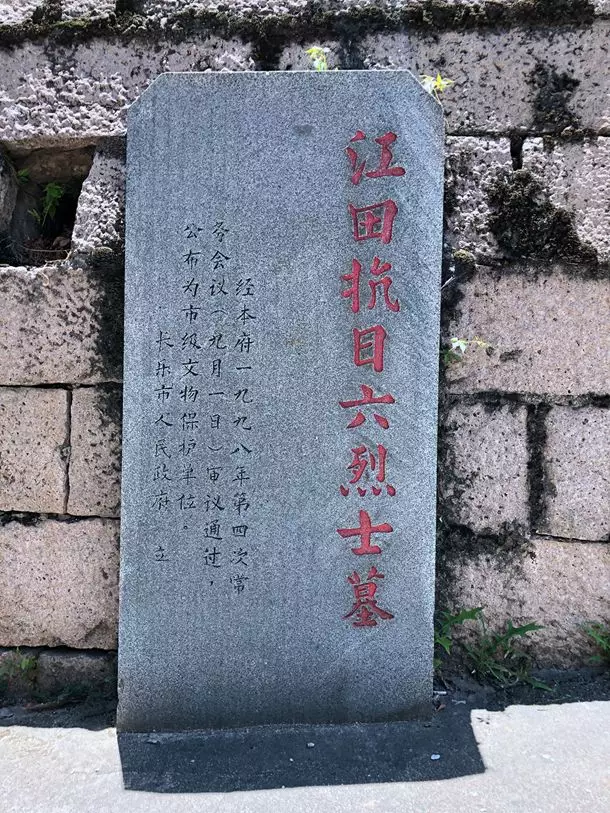 江田抗日六烈士墓
经本府一九九八年第四次常
务会议(九月一日)审议通过，
公布为市级文物保护单位。
长乐市人民政府 立